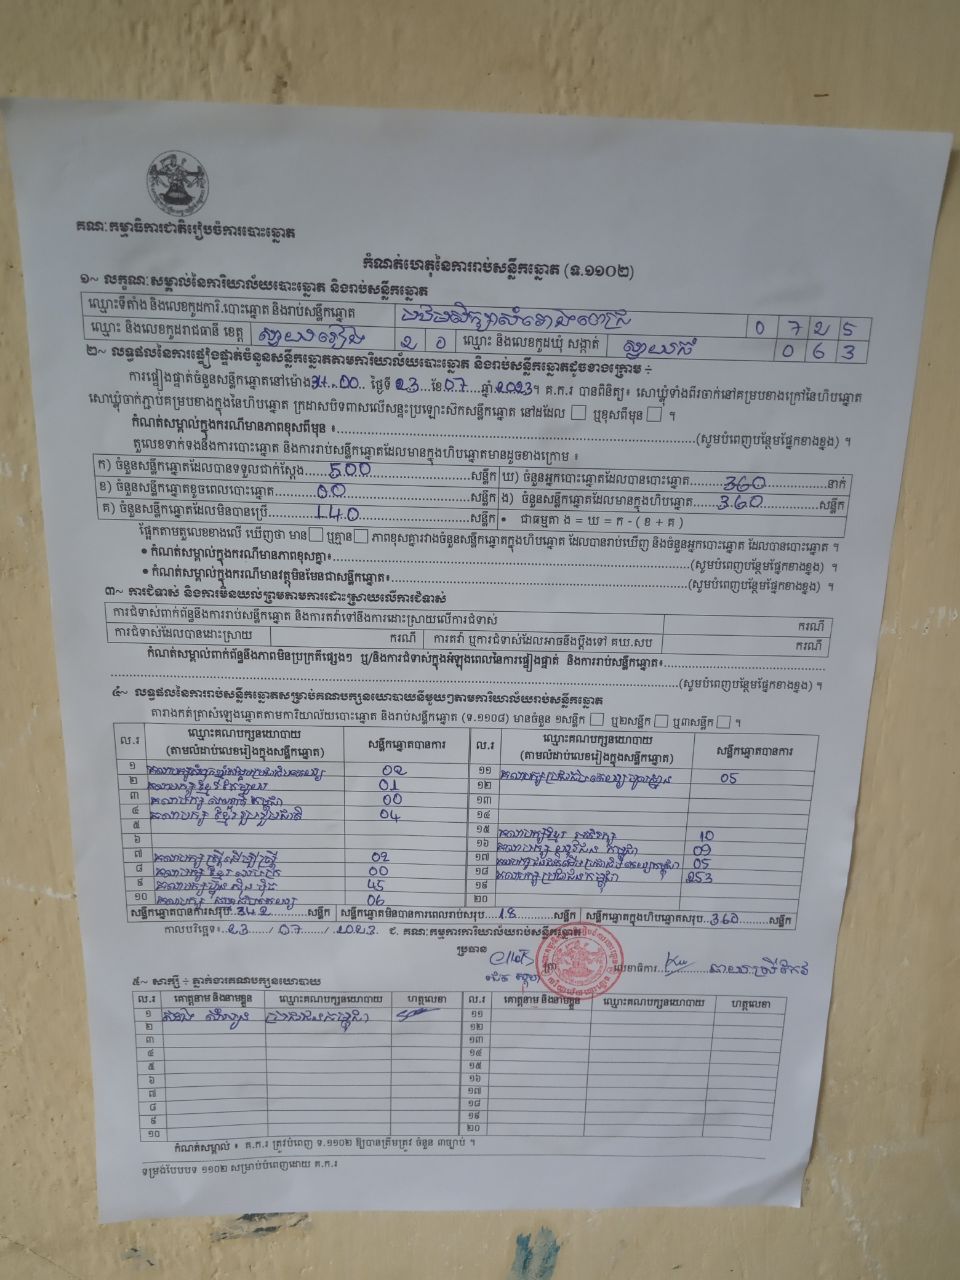 គណៈកម្មាធិការជាតិរៀបចំការបោះឆ្នោត
កំណត់ហេតុនៃការរាប់សន្លឹកឆ្នោត (ទ.១១០២)
១~ លក្ខណៈសម្គាល់នៃការិយាល័យបោះឆ្នោត និងរាប់សន្លឹកឆ្នោត
ឈ្មោះទីតាំង និងលេខកូដការិ.បោះឆ្នោត និងរាប់សន្លឹកឆ្នោត 0 7 2 5
ឈ្មោះ និងលេខកូដរាជធានី ខេត្ត ស្វាយរៀង 2 0 ឈ្មោះ និងលេខកូដឃុំ សង្កាត់ 0 6 3
២~ លទ្ធផលនៃការផ្ទៀងផ្ទាត់ចំនួនសន្លឹកឆ្នោតតាមការិយាល័យបោះឆ្នោត និងរាប់សន្លឹកឆ្នោតដូចខាងក្រោម ÷
ការផ្ទៀងផ្ទាត់ចំនួនសន្លឹកឆ្នោតនៅម៉ោង ថ្ងៃទី 23 ខែ 07 ឆ្នាំ 2023។ គ.ក.រ បានពិនិត្យ៖ សោឃ្លុំទាំងពីរចាក់នៅគម្របខាងក្រៅនៃហិបឆ្នោត
សោឃ្លុំចាក់ភ្ជាប់គម្របខាងក្នុងនៃហិបឆ្នោត ក្រដាសបិទពាសលើសន្ទះប្រឡោះស៊កសន្លឹកឆ្នោត នៅដដែល ឬខុសពីមុន ។
កំណត់សម្គាល់ក្នុងករណីមានភាពខុសពីមុន ៖ (សូមបំពេញបន្ថែមផ្នែកខាងខ្នង) ។
តួលេខទាក់ទងនឹងការបោះឆ្នោត និងការរាប់សន្លឹកឆ្នោតដែលមានក្នុងហិបឆ្នោតមានដូចខាងក្រោម ៖
ក) ចំនួនសន្លឹកឆ្នោតដែលបានទទួលជាក់ស្តែង 500 សន្លឹក ឃ) ចំនួនអ្នកបោះឆ្នោតដែលបានបោះឆ្នោត 360 នាក់
ខ) ចំនួនសន្លឹកឆ្នោតខូចពេលបោះឆ្នោត 00 សន្លឹក ង) ចំនួនសន្លឹកឆ្នោតដែលមានក្នុងហិបឆ្នោត 360 សន្លឹក
គ) ចំនួនសន្លឹកឆ្នោតដែលមិនបានប្រើ 140 សន្លឹក • ជាធម្មតា ង = ឃ = ក - ( ខ + គ )
ផ្អែកតាមតួលេខខាងលើ ឃើញថា មាន ឬគ្មាន ភាពខុសគ្នារវាងចំនួនសន្លឹកឆ្នោតក្នុងហិបឆ្នោត ដែលបានរាប់ឃើញ និងចំនួនអ្នកបោះឆ្នោត ដែលបានបោះឆ្នោត ។
• កំណត់សម្គាល់ក្នុងករណីមានភាពខុសគ្នា៖ (សូមបំពេញបន្ថែមផ្នែកខាងខ្នង) ។
• កំណត់សម្គាល់ក្នុងករណីមានវត្ថុមិនមែនជាសន្លឹកឆ្នោត៖ (សូមបំពេញបន្ថែមផ្នែកខាងខ្នង) ។
៣~ ការជំទាស់ និងការមិនយល់ព្រមតាមការដោះស្រាយលើការជំទាស់
ការជំទាស់ពាក់ព័ន្ធនឹងការរាប់សន្លឹកឆ្នោត និងការតវ៉ាទៅនឹងការដោះស្រាយលើការជំទាស់ ករណី
ការជំទាស់ដែលបានដោះស្រាយ ករណី ការតវ៉ា ឬការជំទាស់ដែលអាចនឹងប្តឹងទៅ គឃ.សប ករណី
កំណត់សម្គាល់ពាក់ព័ន្ធនឹងភាពមិនប្រក្រតីផ្សេងៗ ឬ/និងការជំទាស់ក្នុងអំឡុងពេលនៃការផ្ទៀងផ្ទាត់ និងការរាប់សន្លឹកឆ្នោត៖
(សូមបំពេញបន្ថែមផ្នែកខាងខ្នង) ។
៤~ លទ្ធផលនៃការរាប់សន្លឹកឆ្នោតសម្រាប់គណបក្សនយោបាយនីមួយៗតាមការិយាល័យរាប់សន្លឹកឆ្នោត
តារាងកត់ត្រាសំឡេងឆ្នោតតាមការិយាល័យបោះឆ្នោត និងរាប់សន្លឹកឆ្នោត (ទ.១១០៨) មានចំនួន ១សន្លឹក ឬ២សន្លឹក ឬ៣សន្លឹក ។
ល.រ ឈ្មោះគណបក្សនយោបាយ (តាមលំដាប់លេខរៀងក្នុងសន្លឹកឆ្នោត) សន្លឹកឆ្នោតបានការ ល.រ ឈ្មោះគណបក្សនយោបាយ (តាមលំដាប់លេខរៀងក្នុងសន្លឹកឆ្នោត) សន្លឹកឆ្នោតបានការ
១ 02 ១១ 05
២ 01 ១២
៣ 00 ១៣
៤ 04 ១៤
៥ ១៥ 10
៦ ១៦ 09
៧ គណបក្សស្ត្រីដើម្បីស្ត្រី 02 ១៧ 05
៨ 00 ១៨ គណបក្សប្រជាជនកម្ពុជា 253
៩ គណបក្សហ្វ៊ុនស៊ិនប៉ិច 45 ១៩
១០ 06 ២០
សន្លឹកឆ្នោតបានការសរុប 342 សន្លឹក សន្លឹកឆ្នោតមិនបានការពេលរាប់សរុប 18 សន្លឹក សន្លឹកឆ្នោតក្នុងហិបឆ្នោតសរុប 360 សន្លឹក
កាលបរិច្ឆេទ៖ 23 / 07 / 2023 ជ. គណៈកម្មការការិយាល័យរាប់សន្លឹកឆ្នោត
ប្រធាន
លេខាធិការ
៥~ សាក្សី ÷ ភ្នាក់ងារគណបក្សនយោបាយ
ល.រ គោត្តនាម និងនាមខ្លួន ឈ្មោះគណបក្សនយោបាយ ហត្ថលេខា ល.រ គោត្តនាម និងនាមខ្លួន ឈ្មោះគណបក្សនយោបាយ ហត្ថលេខា
១ ប្រជាជនកម្ពុជា ១១
២ ១២
៣ ១៣
៤ ១៤
៥ ១៥
៦ ១៦
៧ ១៧
៨ ១៨
៩ ១៩
១០ ២០
កំណត់សម្គាល់ ៖ គ.ក.រ ត្រូវបំពេញ ទ.១១០២ ឱ្យបានត្រឹមត្រូវ ចំនួន ៣ច្បាប់ ។
ទម្រង់បែបបទ ១១០២ សម្រាប់បំពេញដោយ គ.ក.រ